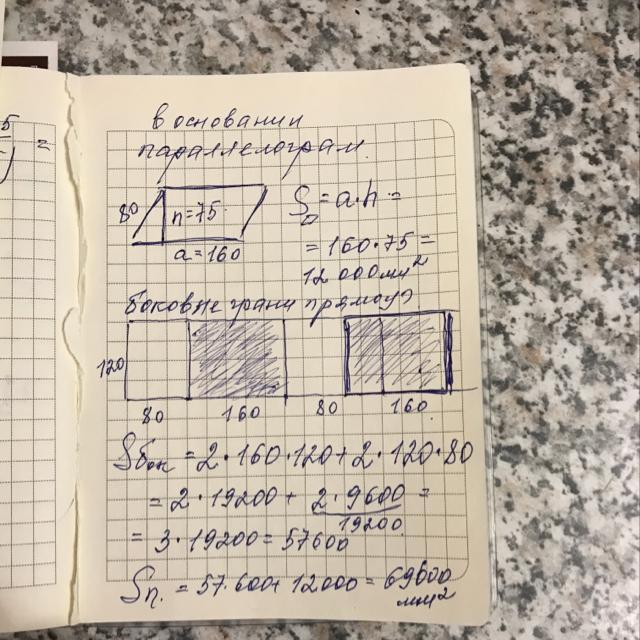 5
=
в основании
параллелограм.
80
h=75
a=160
S▱=a·h=
=160·75=
12000мм²
боковые грани прямоуг
120
80 160 80 160
Sбок=2·160·120+2·120·80
=2·19200+2·9600=
19200
=3·19200=57600
Sп.=57.600+12000=69600
мм²